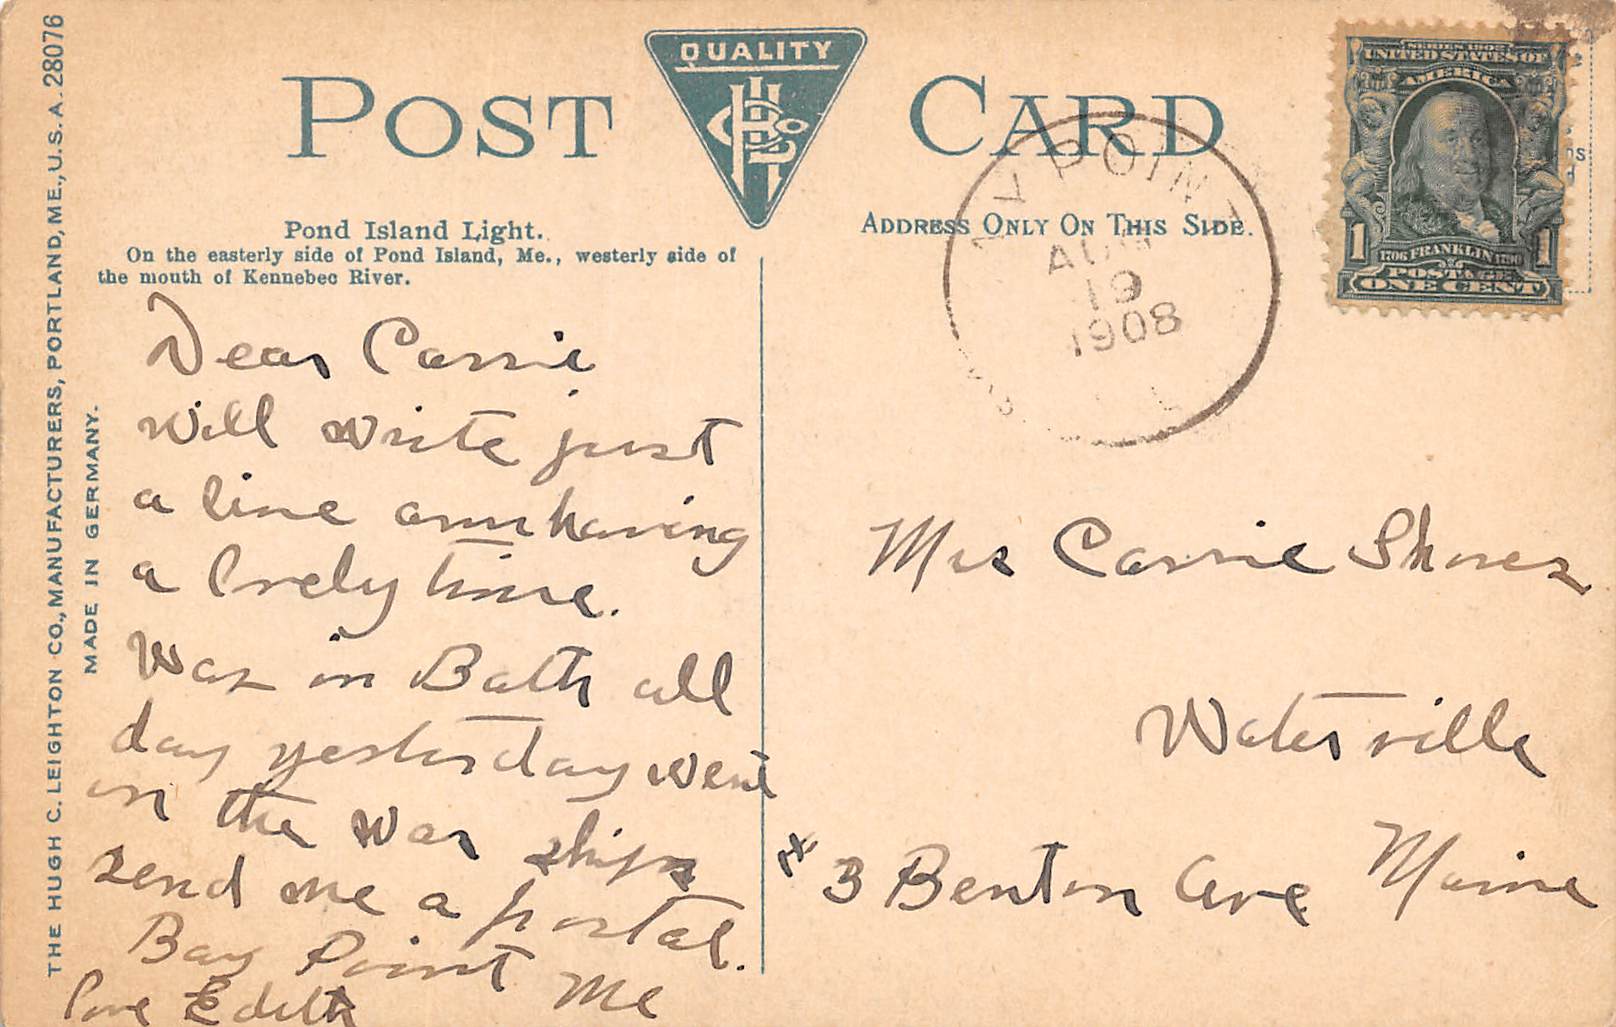 28076
THE HUGH C. LEIGHTON CO., MANUFACTURERS, PORTLAND, ME., U.S.A.
MADE IN GERMANY.
POST CARD
QUALITY
Pond Island Light.
On the easterly side of Pond Island, Me., westerly side of
the mouth of Kennebec River.
ADDRESS ONLY ON THIS SIDE.
Y POINT
AUG
19
1908
SERIES 1902
UNITED STATES OF
AMERICA
1 1706 FRANKLIN 1790 1
POSTAGE
ONE CENT
Dear Carrie
Will write just
a line am having
a lovely time.
Was in Bath all
day yesterday went
on the war ships
send me a postal.
Bay Point Me
Love Edith
Mrs Carrie Shores
Waterville
# 3 Benton Ave Maine